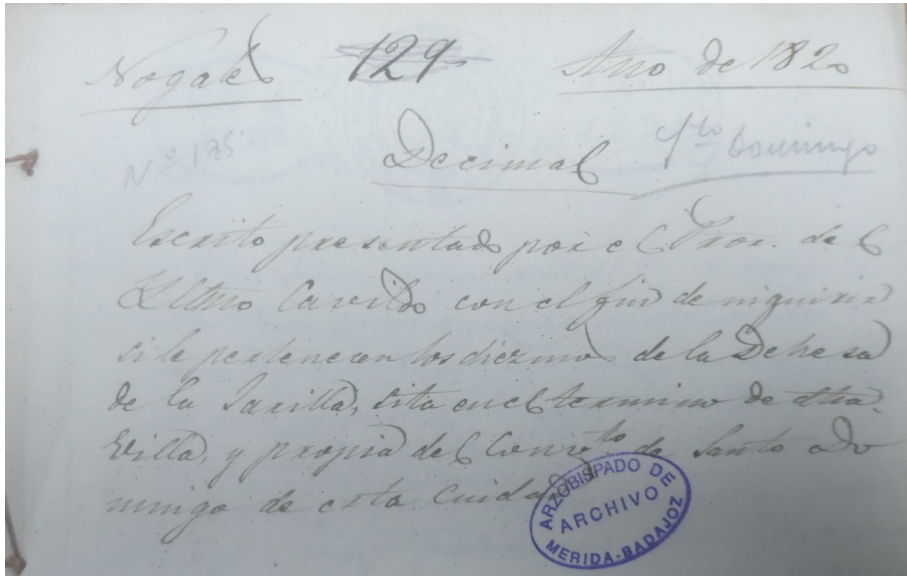 Nogales 129 Año de 1820
Nº 175
Decimal Sto Domingo
Escrito presentado por el Pror. del
Iltmo Cavildo con el fin de inquirir
si le pertenecen los diezmos de la Dehesa
de la Jarilla, sita en el termino de dha.
Villa, y propia del Convto de Santo Do
mingo de esta Ciudad
ARZOBISPADO DE
ARCHIVO
MERIDA-BADAJOZ